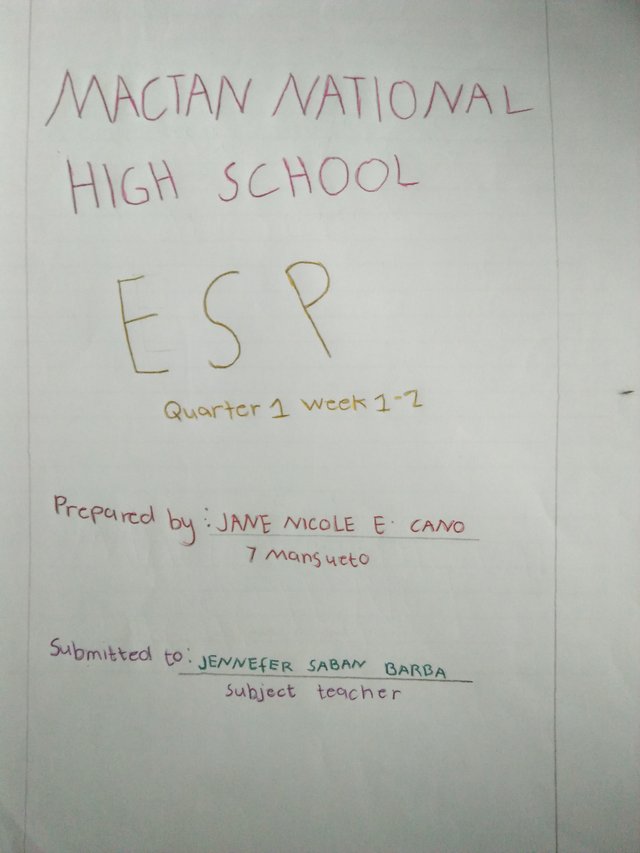 MACTAN NATIONAL
HIGH SCHOOL
ESP
Quarter 1 Week 1-2
Prepared by: JANE NICOLE E. CANO
7 Mansueto
Submitted to: JENNEFER SABAN BARBA
Subject teacher